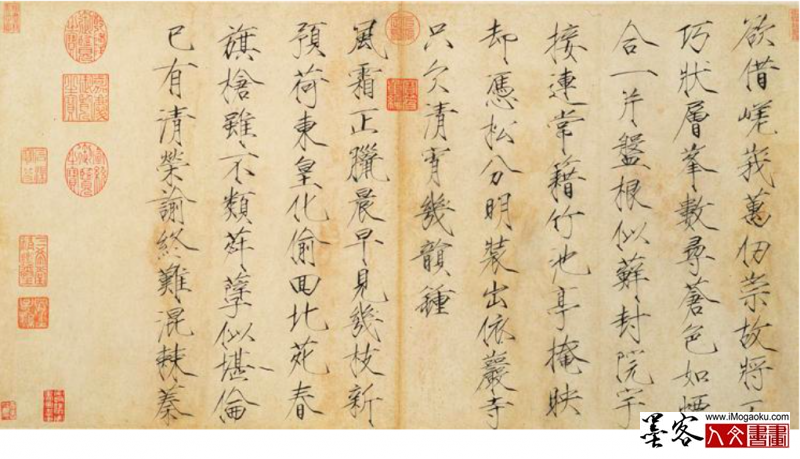 欲借嵯峩萬仞崇故將
巧狀層峯數尋蒼色如
合一片盤根似蘚封院宇
接連常藉竹池亭掩映
却憑松分明裝出依巖寺
只欠清宵幾韻鍾
風霜正臘晨早見幾枝新
預荷東皇化偷回北苑春
旗槍雖不類荈孽似堪倫
已有清榮諭終難混棘蓁
www.iMogaoku.com
墨客人文書畫